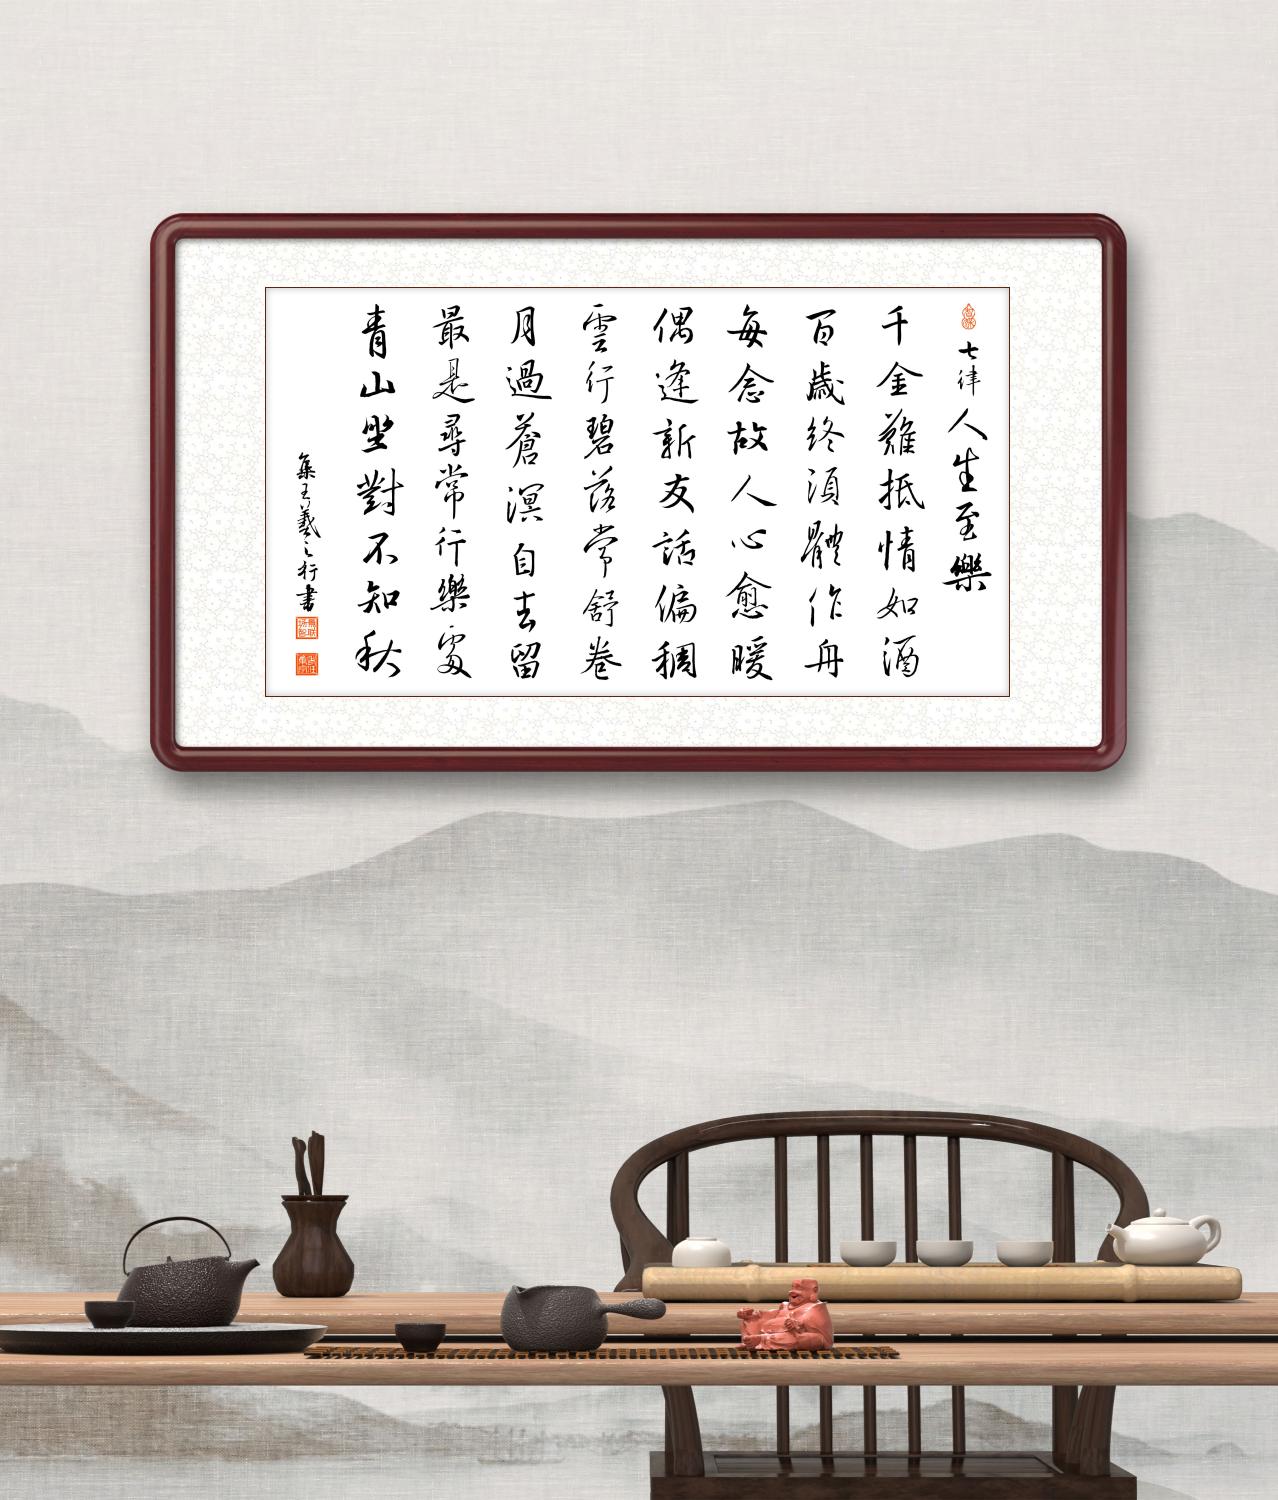 七律人生至樂
千金難抵情如酒
百歲終須體作舟
每念故人心愈暖
偶逢新友話偏稠
雲行碧落常舒卷
月過蒼溟自去留
最是尋常行樂處
青山坐對不知秋
集王羲之行書